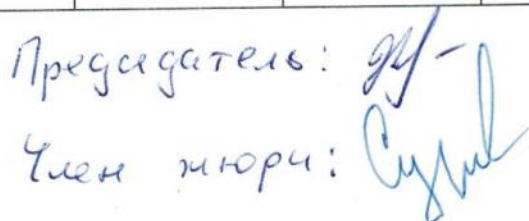 Председатель:
Член жюри: